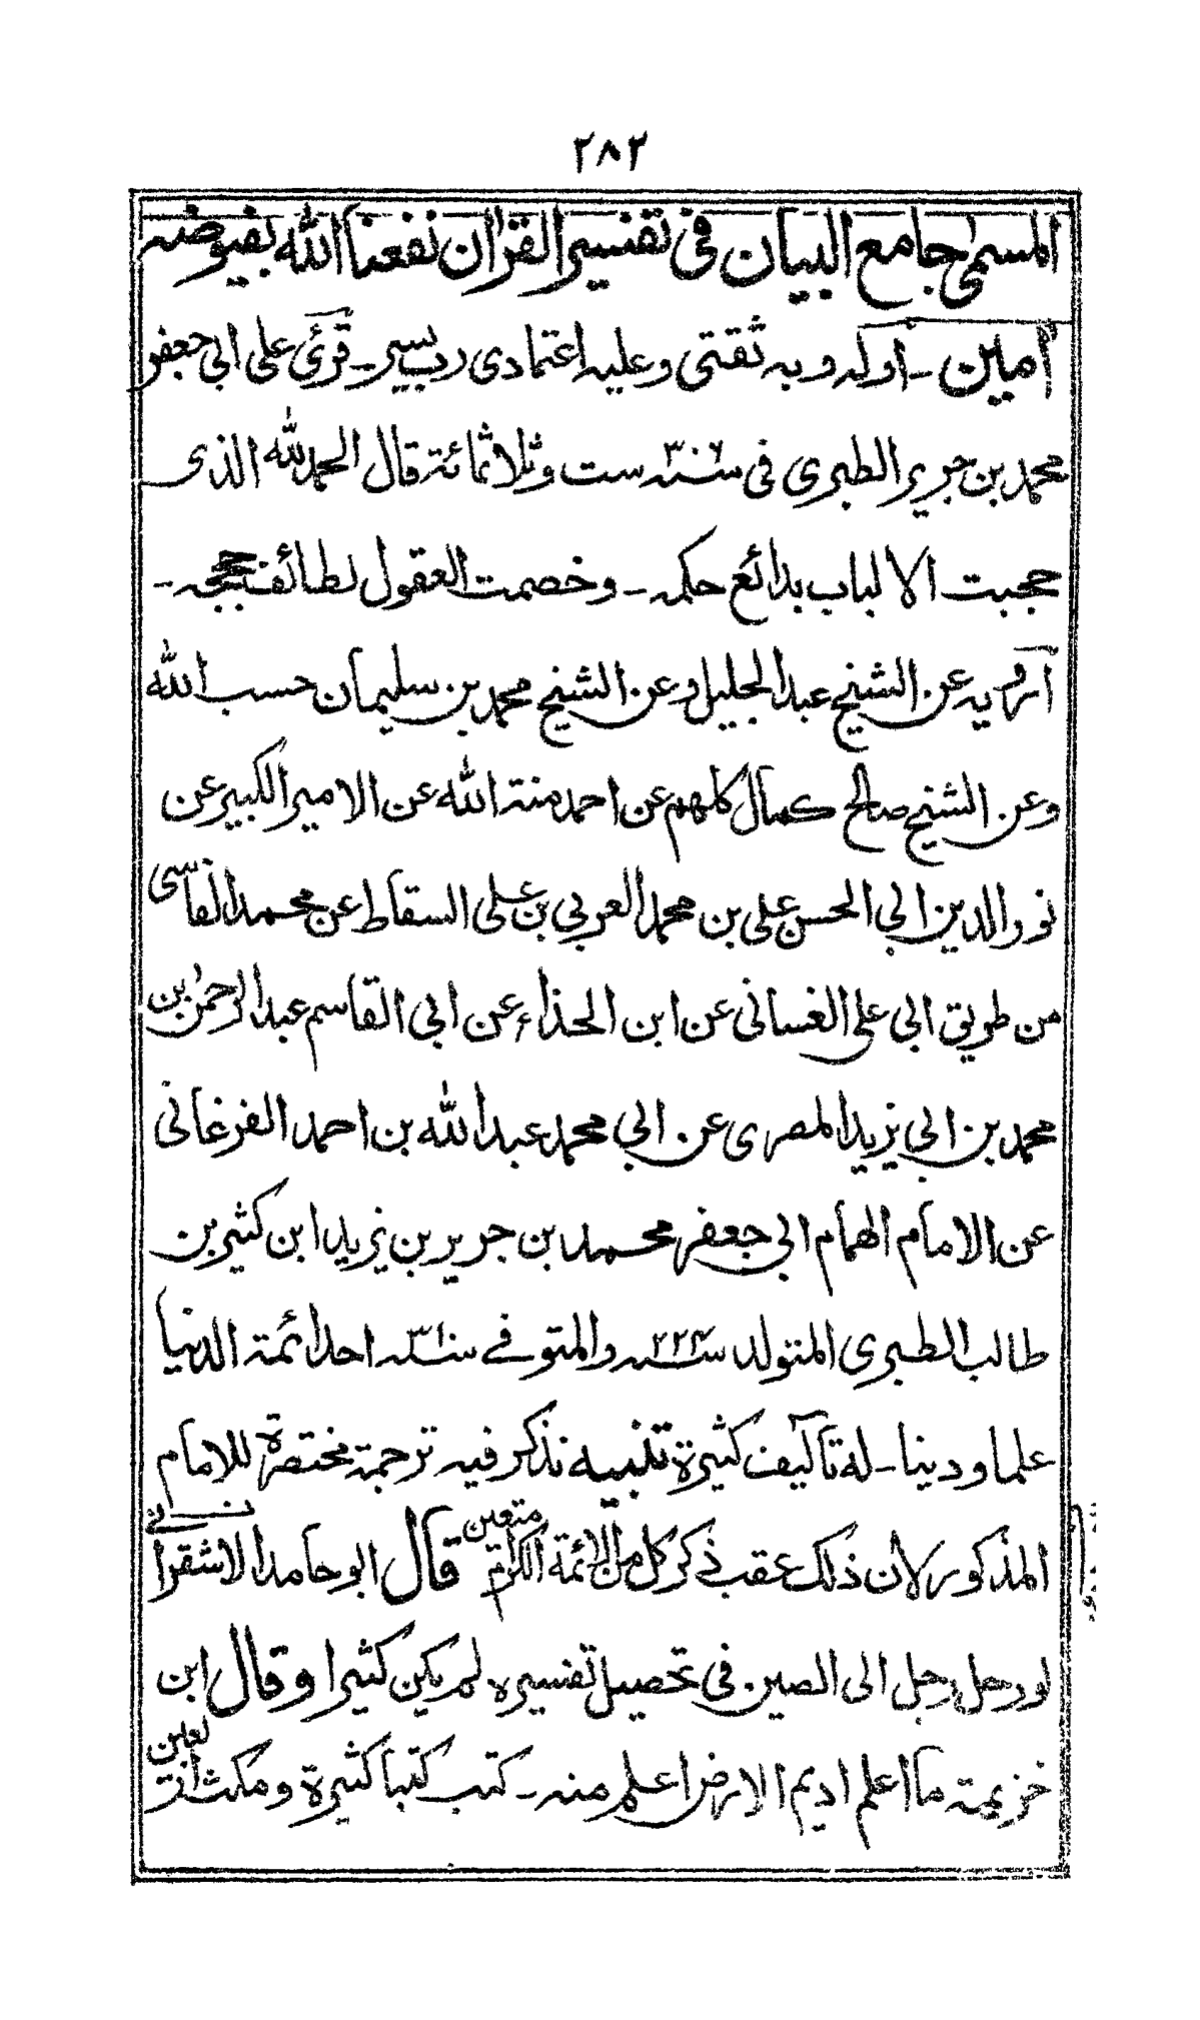 ٢٨٢
المسمى جامع البيان في تفسير القرآن نفعنا الله بفيوضه
آمين - أوله وبه ثقتي وعليه اعتمادي رب يسير - قرئ على ابي جعفر
محمد بن جرير الطبري في سنة ٣٠٦ ست وثلاثمائة قال الحمد لله الذي
حجبت الالباب بدائع حكمه - وخصمت العقول لطائف حججه -
أرويه عن الشيخ عبد الجليل وعن الشيخ محمد بن سليمان حسب الله
وعن الشيخ صالح كمال كلهم عن احمد منة الله عن الامير الكبير عن
نور الدين ابي الحسن علي بن محمد العربي بن علي السقاط عن محمد الفاسي
من طريق ابي علي الغساني عن ابن الحذاء عن ابي القاسم عبد الرحمن بن
محمد بن ابي يزيد المصري عن ابي محمد عبد الله بن احمد الفرغاني
عن الامام الهمام ابي جعفر محمد بن جرير بن يزيد ابن كثير بن
طالب الطبري المتولد سنة ٢٢٤ والمتوفے سنة ٣١٠ احد ائمة الدنيا
علما ودينا - له تآليف كثيرة تنبيه نذكر فيه ترجمة مختصرة للامام
المذكور لأن ذلك عقب ذكر كل من الائمة الكرام متعين قال ابو حامد الاسفرائني
لو رحل رجل الى الصين في تحصيل تفسيره لم يكن كثيرا وقال ابن
خزيمة ما اعلم اديم الارض اعلم منه - كتب كتبا كثيرة ومكث اربعين